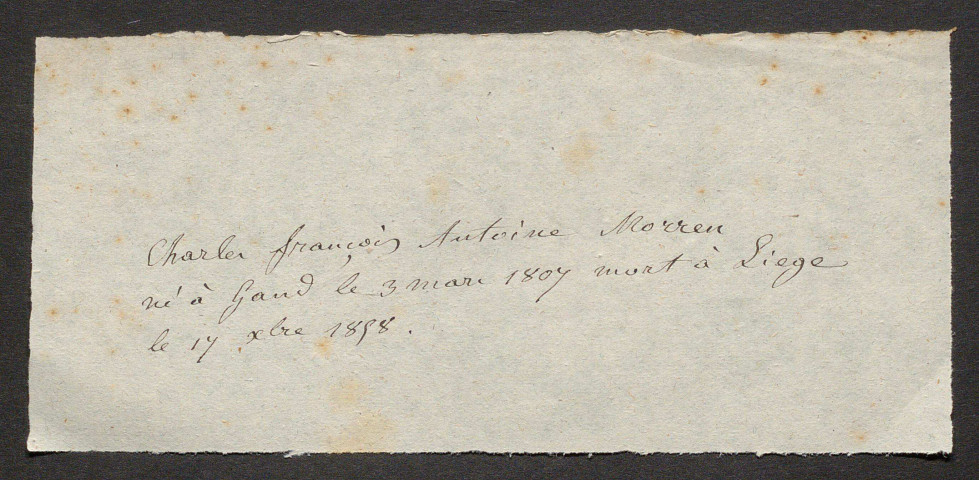 Charles françois Antoine Morren
né à Gand le 3 mars 1807 mort à Liege
le 17 xbre 1858.